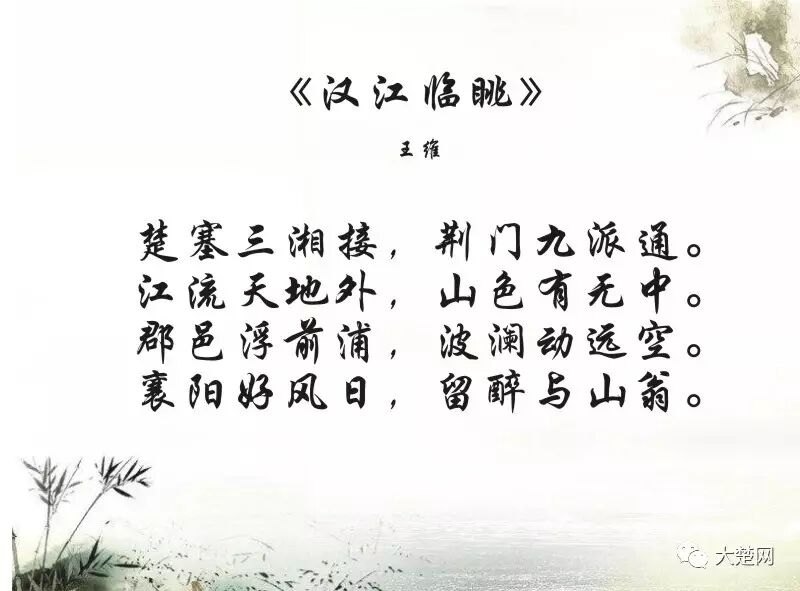 《汉江临眺》
王维
楚塞三湘接，荆门九派通。
江流天地外，山色有无中。
郡邑浮前浦，波澜动远空。
襄阳好风日，留醉与山翁。
大楚网